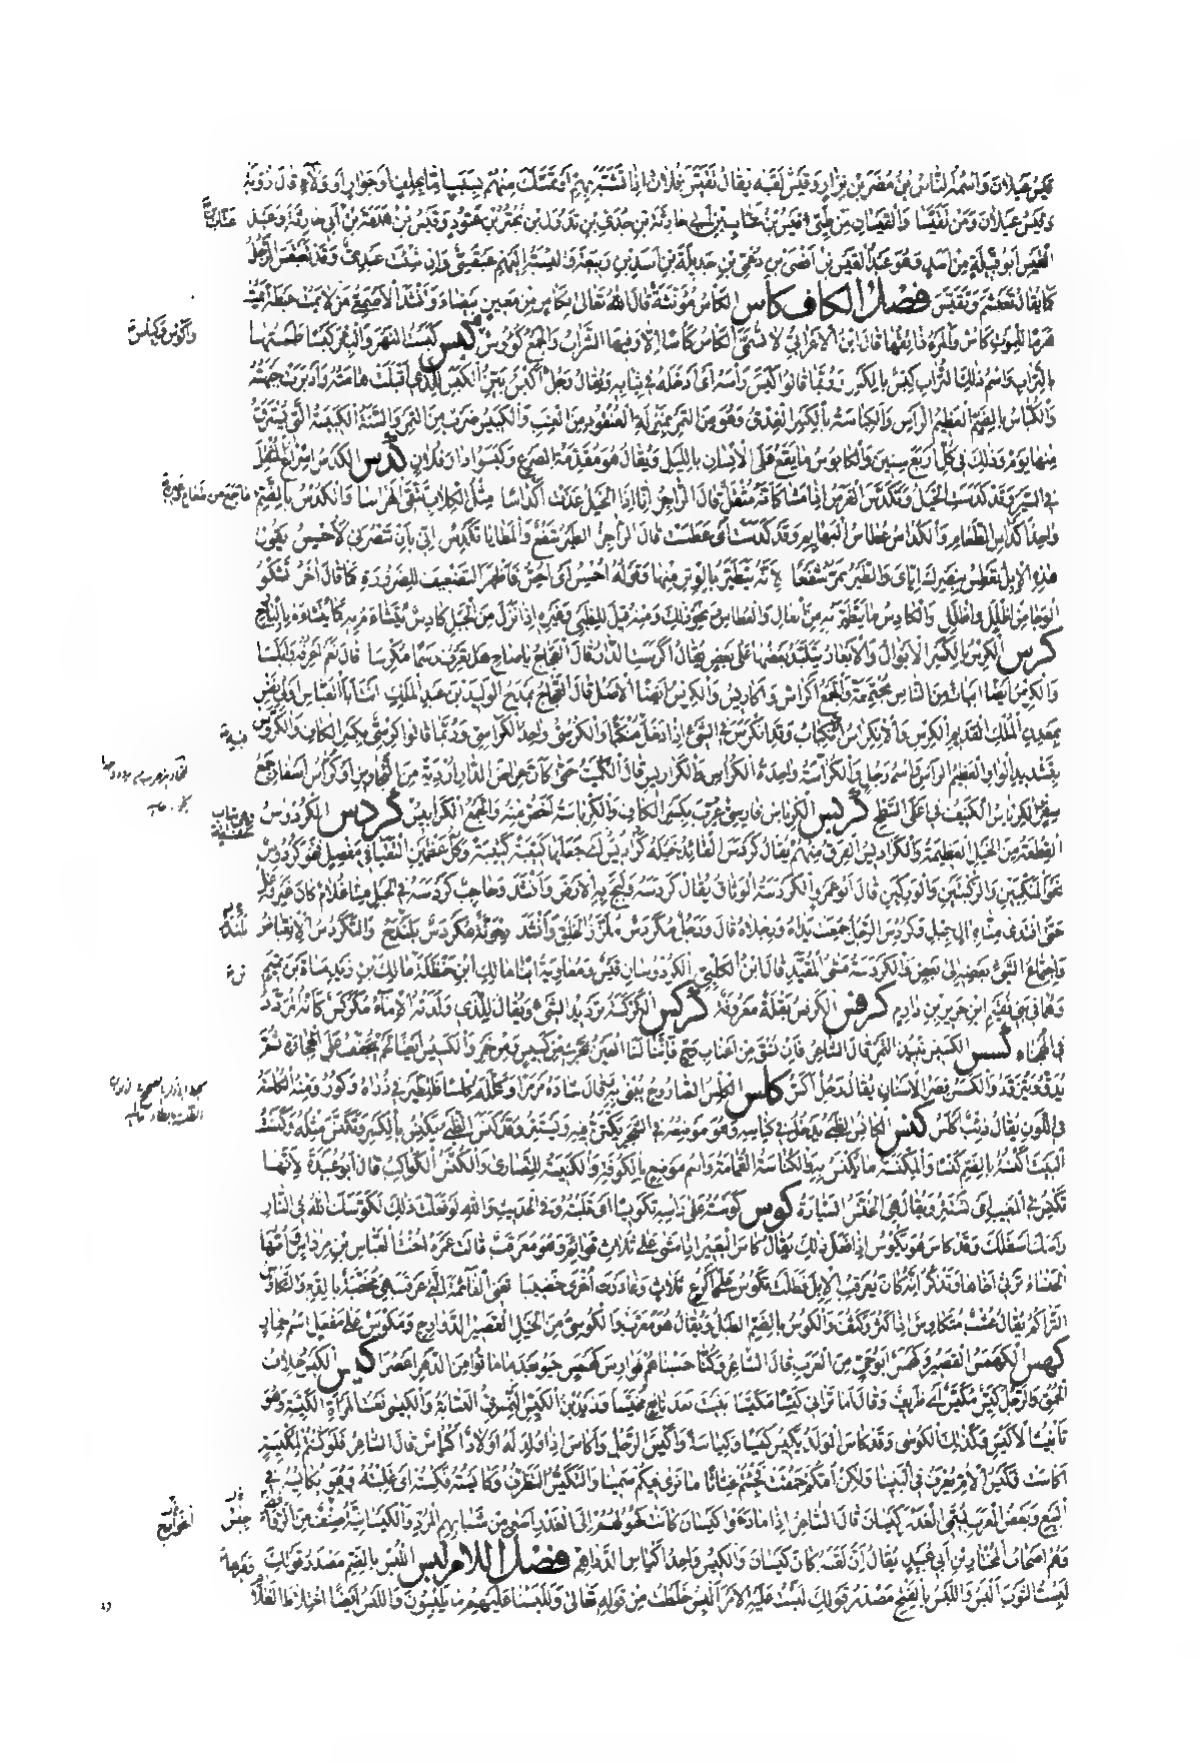 قيس عيلان واسمه الناس بن مضر بن نزار وقيس لقبه يقال تقيس فلان اذا تشبه بهم او تمسك منهم بسبب اما بحلف او جوار او ولاء قال رؤبة
وقيس عيلان ومن تقيسا والقيسان من طيئ قيس بن عتاب بن ابي حارثة بن جدي بن تدول بن بحتر بن عتود وقيس بن هذمة بن ابي حارثة وعبد
القيس ابو قبيلة من اسد وهو عبد القيس بن افصى بن دعمي بن جديلة بن اسد بن ربيعة والنسبة اليهم عبقسي وان شئت عبدي وقد تعبقس الرجل
كما يقال تعبشم وتقيس فصل الكاف كأس الكأس مؤنثة قال الله تعالى بكأس من معين بيضاء وانشد الاصمعي من لا يمت عبطة يمت
هرما للموت كأس والمرء ذائقها قال ابن الاعرابي لا تسمى الكأس كأسا الا وفيها الشراب والجمع كؤوس كبس كبست النهر والبئر كبسا طممتها
بالتراب واسم ذلك التراب كبس بالكسر وربما قالوا كبس رأسه اي ادخله في ثيابه ويقال رجل اكبس بين الكبس للذي اقبلت هامته وادبرت جبهته
والكباس بالضم العظيم الرأس والكباسة بالكسر العذق وهو من التمر بمنزلة العنقود من العنب والكبيس ضرب من التمر والسنة الكبيسة التي يسترق
منها يوم وذلك في كل اربع سنين والكابوس ما يقع على الانسان بالليل ويقال هو مقدمة الصرع وكبسوا دار فلان كدس الكدس اسراع المثقل
في السير وقد كدست الخيل وتكدس الفرس اذا مشا كانه مثقل قال الراجز انا اذا الخيل عدت اكداسا مثل الكلاب تتقي الهراسا والكدس بالضم
واحد اكداس الطعام والكداس عطاس البهايم وقد كدست اي عطست قال الراجز الطير شفع والمطايا تكدس اني بان تنصرني لاحسس يقول
هذه الابل تعطس بنصرك اياي والطير تمر شفعا لانه يتطير بالوتر منها وقوله احسس اي احس فاظهر التضعيف للضرورة كما قال اخر تشكو
الوجا من اظلل واظلل والكادس ما يتطير به من الفال والعطاس ونحو ذلك ومنه قيل للظبي وغيره اذا نزل من الجبل كادس يتشاءم به كما يتشاءم بالبارح
كرس الكرس بالكسر الابوال والابعار يتلبد بعضها على بعض يقال اكرست الدار قال العجاج يا صاح هل تعرف رسما مكرسا قال نعم اعرفه وابلسا
والكرس ايضا ابيات من الناس مجتمعة والجمع اكراس واكاريس والكرس ايضا الاصل قال العجاج يمدح الوليد بن عبد الملك انت ابا العباس اولى نفس
بمعدن الملك القديم الكرس والانكراس الانكباب وقد انكرس في الشيء اذا دخل منكبا والكرسي واحد الكراسي وربما قالوا كرسي بكسر الكاف والكروس
بتشديد الواو العظيم الرأس واسم رجل والكراسة واحدة الكراس والكراريس قال الكميت حتى كان عراص الدار اردية من التجاويز او كراس اسفار جمع
سفر الكرياس الكنيف في اعلى السطح كربس الكرباس فارسي معرب بكسر الكاف والكرباسة اخص منه والجمع الكرابيس كردس الكردوس
القطعة من الخيل العظيمة والكراديس الفرق منهم يقال كردس القائد خيله اي جعلها كتيبة كتيبة وكل عظمين التقيا في مفصل فهو كردوس
نحو المنكبين والركبتين والوركين قال ابو عمرو الكردسة الوثاق يقال كردسه ولبج به الارض وانشد وحاجب كردسه في الحبل منا غلام كان غير وغل
حتى افتدى منا بمال جبل وكردس الرجل جمعت يداه ورجلاه قال ورجل مكردس ملزز الخلق وانشد دحونة مكردس بلندح والتكردس الانقباض
واجتماع الشيء بعضه الى بعض والكردسة مشي المقيد قال ابن الكلبي الكردوسان قيس ومعاوية ابنا مالك ابن حنظلة مالك بن زيد مناة بن تميم
وهما في بني فقيم ابن جرير بن دارم كرفس الكرفس بقلة معروفة كركس الكركسة ترديد الشيء ويقال للذي ولدته الاماء مكركس كانه المردد
في الهجناء كسس الكسيس نبيذ التمر قال الشاعر فان تسق من اعناب وج فاننا لنا العين تجري من كسيس ومن خمر والكسيس ايضا لحم يجفف على الحجارة ثم
يدق ويتزود والكسس قصر الاسنان يقال رجل اكس كلس الكلس الصاروج يبنى به قال شاده مرمرا وجلله كلسا فللطير في ذراه وكور ومنه الكلسة
في اللون يقال ذئب اكلس كنس الكانس الظبي يدخل في كناسه وهو موضعه في الشجر يكتن فيه ويستتر وقد كنس الظبي يكنس بالكسر وتكنس مثله وكنست
البيت اكنسه بالضم كنسا والمكنسة ما يكنس به والكناسة القمامة واسم موضع بالكوفة والكنيسة للنصارى والكنس الكواكب قال ابو عبيدة لانها
تكنس في المغيب اي تستتر ويقال هي الخنس السيارة كوس كوسته على راسه تكويسا اي قلبته وفي الحديث والله لو فعلت ذلك لكوسك الله في النار
راسك اسفلك وقد كاس هو يكوس اذا فعل ذلك يقال كاس البعير اذا مشى على ثلاث قوائم وهو معرقب قالت عمرة اخت العباس بن مرداس امها
الخنساء ترثي اخاها وتذكر انه كان يعرقب الابل فظلت تكوس على اكرع ثلاث وغادرت اخرى خضيبا تعني القائمة التي عرقبت هي مخضبة بالدم والتكاوس
التراكم يقال عشب متكاوس اذا كثر وكثف والكوس بالضم الطبل ويقال هو معرب والكوسي من الخيل القصير الدوارج ومكوس على مفعل اسم حمار
كهمس الكهمس القصير وكهمس ابو حي من العرب قال الشاعر وكنا حسبناهم فوارس كهمس حيوا بعد ما ماتوا من الدهر اعصرا كيس الكيس خلاف
الحمق والرجل كيس مكيس اي ظريف وقال اما تراني كيسا مكيسا بنيت بعد نافع مخيسا وزيد بن الكيس النمري النسابة والكيسى نعت المرأة الكيسة وهو
تأنيث الاكيس وكذلك الكوسى وقد كاس الولد يكيس كيسا وكياسة واكيس الرجل واكاس اذا ولد له اولاد اكياس قال الشاعر فلو كنتم لمكيسة
اكاست وكيس الام يعرف في البنينا ولكن امكم حمقت فجئتم غثاثا ما نرى فيكم سمينا والتكيس التظرف وكايسته فكسته اي غلبته وهو يكايسه في
البيع وبعض العرب يسمي الغدر كيسان قال الشاعر اذا ما دعوا كيسان كانت كهولهم الى الغدر اسعى من شبابهم المرد والكيسانية صنف من الرافضة
وهم اصحاب المختار بن ابي عبيد يقال ان لقبه كان كيسان والكيس واحد اكياس الدراهم فصل اللام لبس اللبس بالضم مصدر قولك
لبست الثوب البس واللبس بالفتح مصدر قولك لبست عليه الامر البس خلطت من قوله تعالى وللبسنا عليهم ما يلبسون واللبس ايضا اختلاط الظلام